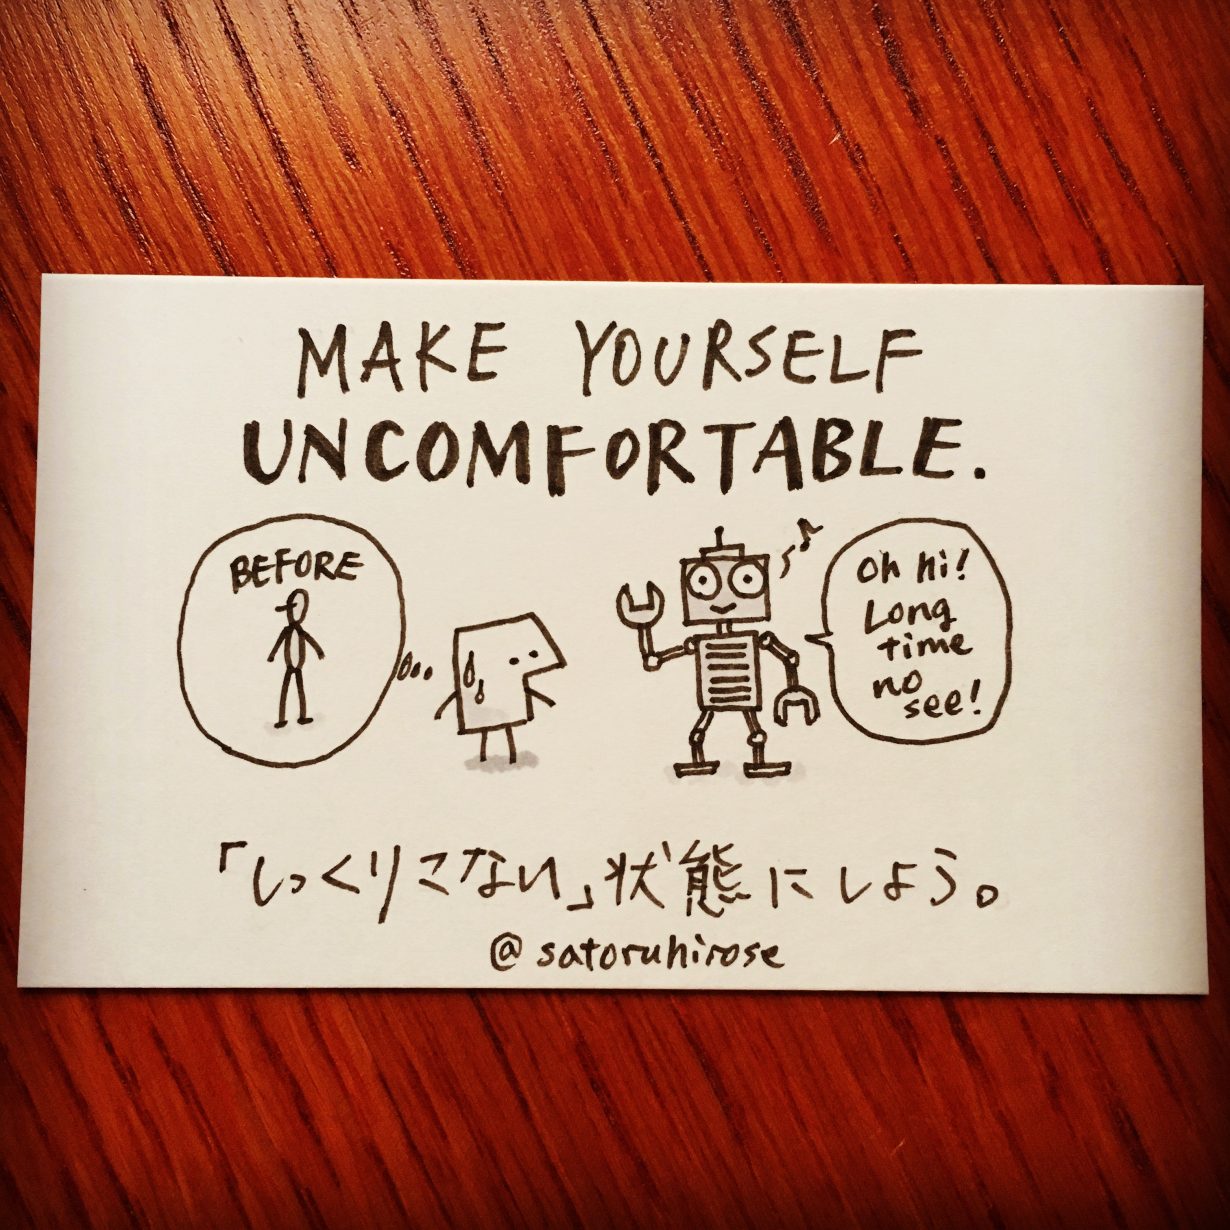 MAKE YOURSELF
UNCOMFORTABLE.
BEFORE
Oh hi!
Long
time
no
see!
「しっくりこない」状態にしよう。
@satoruhirose